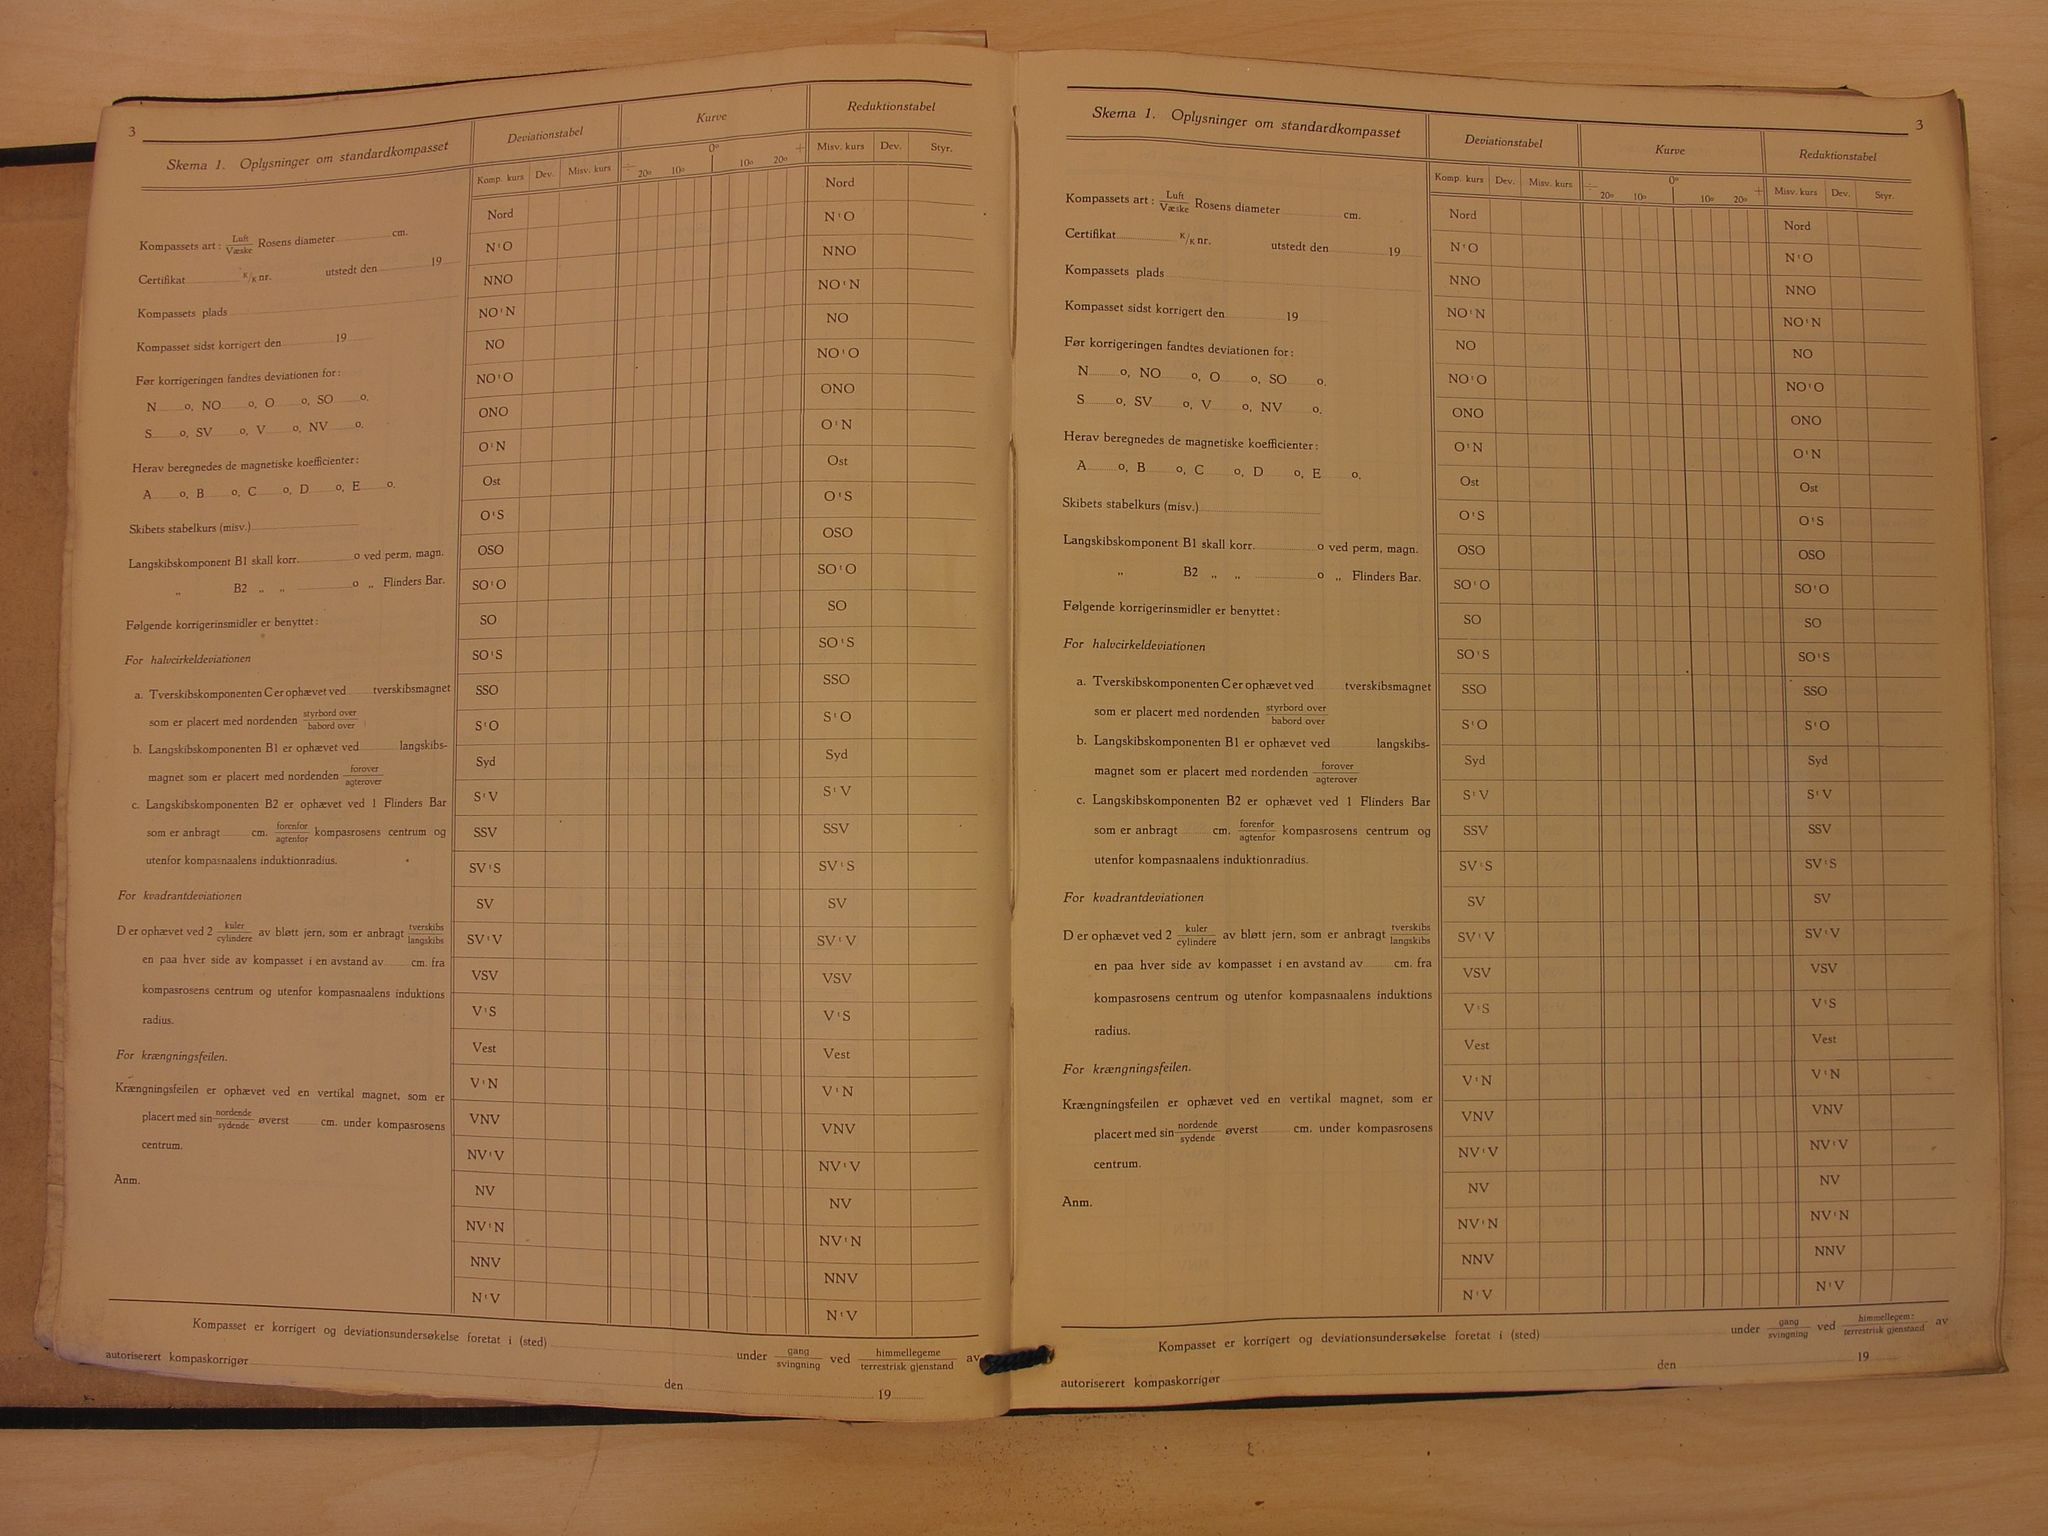 3
Skema 1. Oplysninger om standardkompasset
Kompassets art: Luft/Væske Rosens diameter cm.
Certifikat K/K nr. utstedt den 19
Kompassets plads
Kompasset sidst korrigert den 19
Før korrigeringen fandtes deviationen for:
N o, NO o, O o, SO o.
S o, SV o, V o, NV o.
Herav beregnedes de magnetiske koefficienter:
A o, B o, C o, D o, E o.
Skibets stabelkurs (misv.)
Langskibskomponent B1 skall korr. o ved perm, magn.
„ B2 „ „ o „ Flinders Bar.
Følgende korrigerinsmidler er benyttet:
For halvcirkeldeviationen
a. Tverskibskomponenten C er ophævet ved tverskibsmagnet
som er placert med nordenden styrbord over/babord over
b. Langskibskomponenten B1 er ophævet ved langskibs-
magnet som er placert med nordenden forover/agterover
c. Langskibskomponenten B2 er ophævet ved 1 Flinders Bar
som er anbragt cm. forenfor/agtenfor kompasrosens centrum og
utenfor kompasnaalens induktionradius.
For kvadrantdeviationen
D er ophævet ved 2 kuler/cylindere av bløtt jern, som er anbragt tverskibs/langskibs
en paa hver side av kompasset i en avstand av cm. fra
kompasrosens centrum og utenfor kompasnaalens induktions
radius.
For krængningsfeilen.
Krængningsfeilen er ophævet ved en vertikal magnet, som er
placert med sin nordende/sydende øverst cm. under kompasrosens
centrum.
Anm.
Deviationstabel Kurve Reduktionstabel
Komp. kurs Dev. Misv. kurs ÷ 20o 10o 0o 10o 20o + Misv. kurs Dev. Styr.
Nord Nord
N'O N'O
NNO NNO
NO'N NO'N
NO NO
NO'O NO'O
ONO ONO
O'N O'N
Ost Ost
O'S O'S
OSO OSO
SO'O SO'O
SO SO
SO'S SO'S
SSO SSO
S'O S'O
Syd Syd
S'V S'V
SSV SSV
SV'S SV'S
SV SV
SV'V SV'V
VSV VSV
V'S V'S
Vest Vest
V'N V'N
VNV VNV
NV'V NV'V
NV NV
NV'N NV'N
NNV NNV
N'V N'V
Kompasset er korrigert og deviationsundersøkelse foretat i (sted) under gang/svingning ved himmellegeme/terrestrisk gjenstand av
autoriserert kompaskorrigør den 19
3
Skema 1. Oplysninger om standardkompasset
Kompassets art: Luft/Væske Rosens diameter cm.
Certifikat K/K nr. utstedt den 19
Kompassets plads
Kompasset sidst korrigert den 19
Før korrigeringen fandtes deviationen for:
N o, NO o, O o, SO o.
S o, SV o, V o, NV o.
Herav beregnedes de magnetiske koefficienter:
A o, B o, C o, D o, E o.
Skibets stabelkurs (misv.)
Langskibskomponent B1 skall korr. o ved perm, magn.
„ B2 „ „ o „ Flinders Bar.
Følgende korrigerinsmidler er benyttet:
For halvcirkeldeviationen
a. Tverskibskomponenten C er ophævet ved tverskibsmagnet
som er placert med nordenden styrbord over/babord over
b. Langskibskomponenten B1 er ophævet ved langskibs-
magnet som er placert med nordenden forover/agterover
c. Langskibskomponenten B2 er ophævet ved 1 Flinders Bar
som er anbragt cm. forenfor/agtenfor kompasrosens centrum og
utenfor kompasnaalens induktionradius.
For kvadrantdeviationen
D er ophævet ved 2 kuler/cylindere av bløtt jern, som er anbragt tverskibs/langskibs
en paa hver side av kompasset i en avstand av cm. fra
kompasrosens centrum og utenfor kompasnaalens induktions
radius.
For krængningsfeilen.
Krængningsfeilen er ophævet ved en vertikal magnet, som er
placert med sin nordende/sydende øverst cm. under kompasrosens
centrum.
Anm.
Deviationstabel Kurve Reduktionstabel
Komp. kurs Dev. Misv. kurs ÷ 20o 10o 0o 10o 20o + Misv. kurs Dev. Styr.
Nord Nord
N'O N'O
NNO NNO
NO'N NO'N
NO NO
NO'O NO'O
ONO ONO
O'N O'N
Ost Ost
O'S O'S
OSO OSO
SO'O SO'O
SO SO
SO'S SO'S
SSO SSO
S'O S'O
Syd Syd
S'V S'V
SSV SSV
SV'S SV'S
SV SV
SV'V SV'V
VSV VSV
V'S V'S
Vest Vest
V'N V'N
VNV VNV
NV'V NV'V
NV NV
NV'N NV'N
NNV NNV
N'V N'V
Kompasset er korrigert og deviationsundersøkelse foretat i (sted) under gang/svingning ved himmellegem:/terrestrisk gjenstand av
autoriserert kompaskorrigør den 19